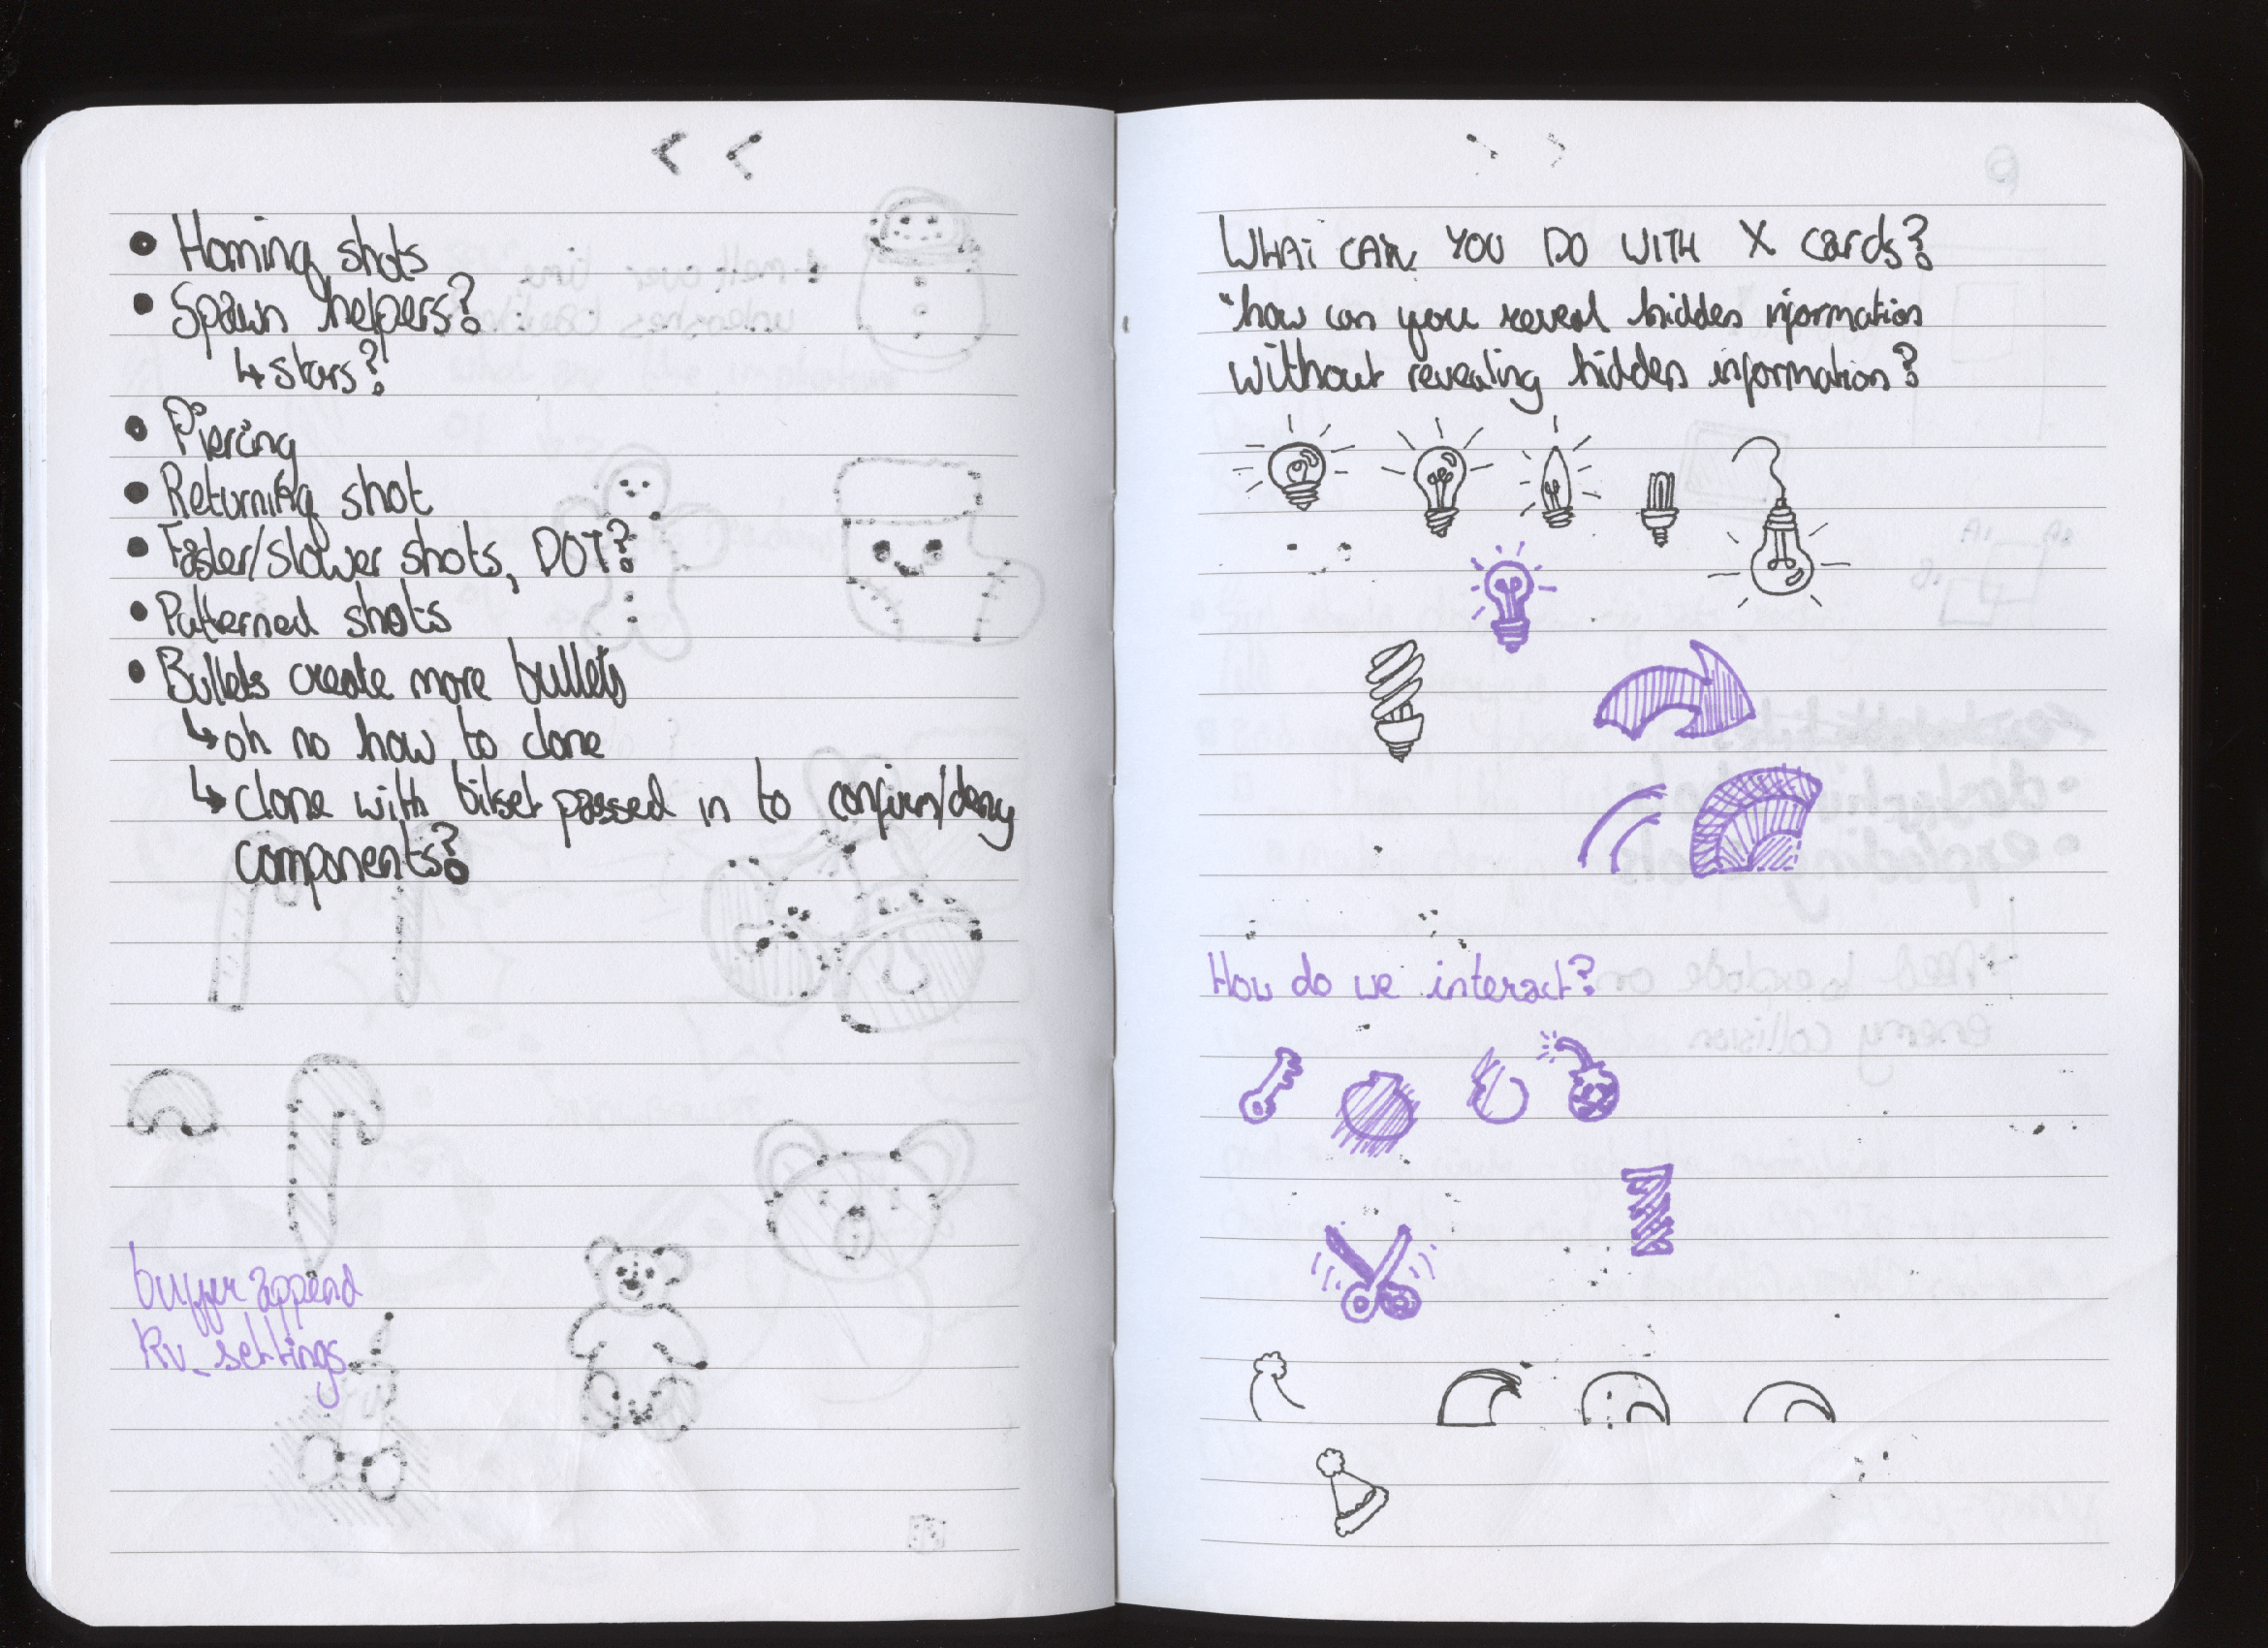 • Homing shots
• Spawn helpers?
↳ stars?
• Piercing
• Returning shot
• Faster/slower shots, DOT?
• Patterned shots
• Bullets create more bullets
↳ oh no how to clone
↳ clone with bitset passed in to confirm/deny
components?
buffer append
kv_settings
WHAT CAN YOU DO WITH X cards?
"how can you reveal hidden information
without revealing hidden information?
How do we interact?